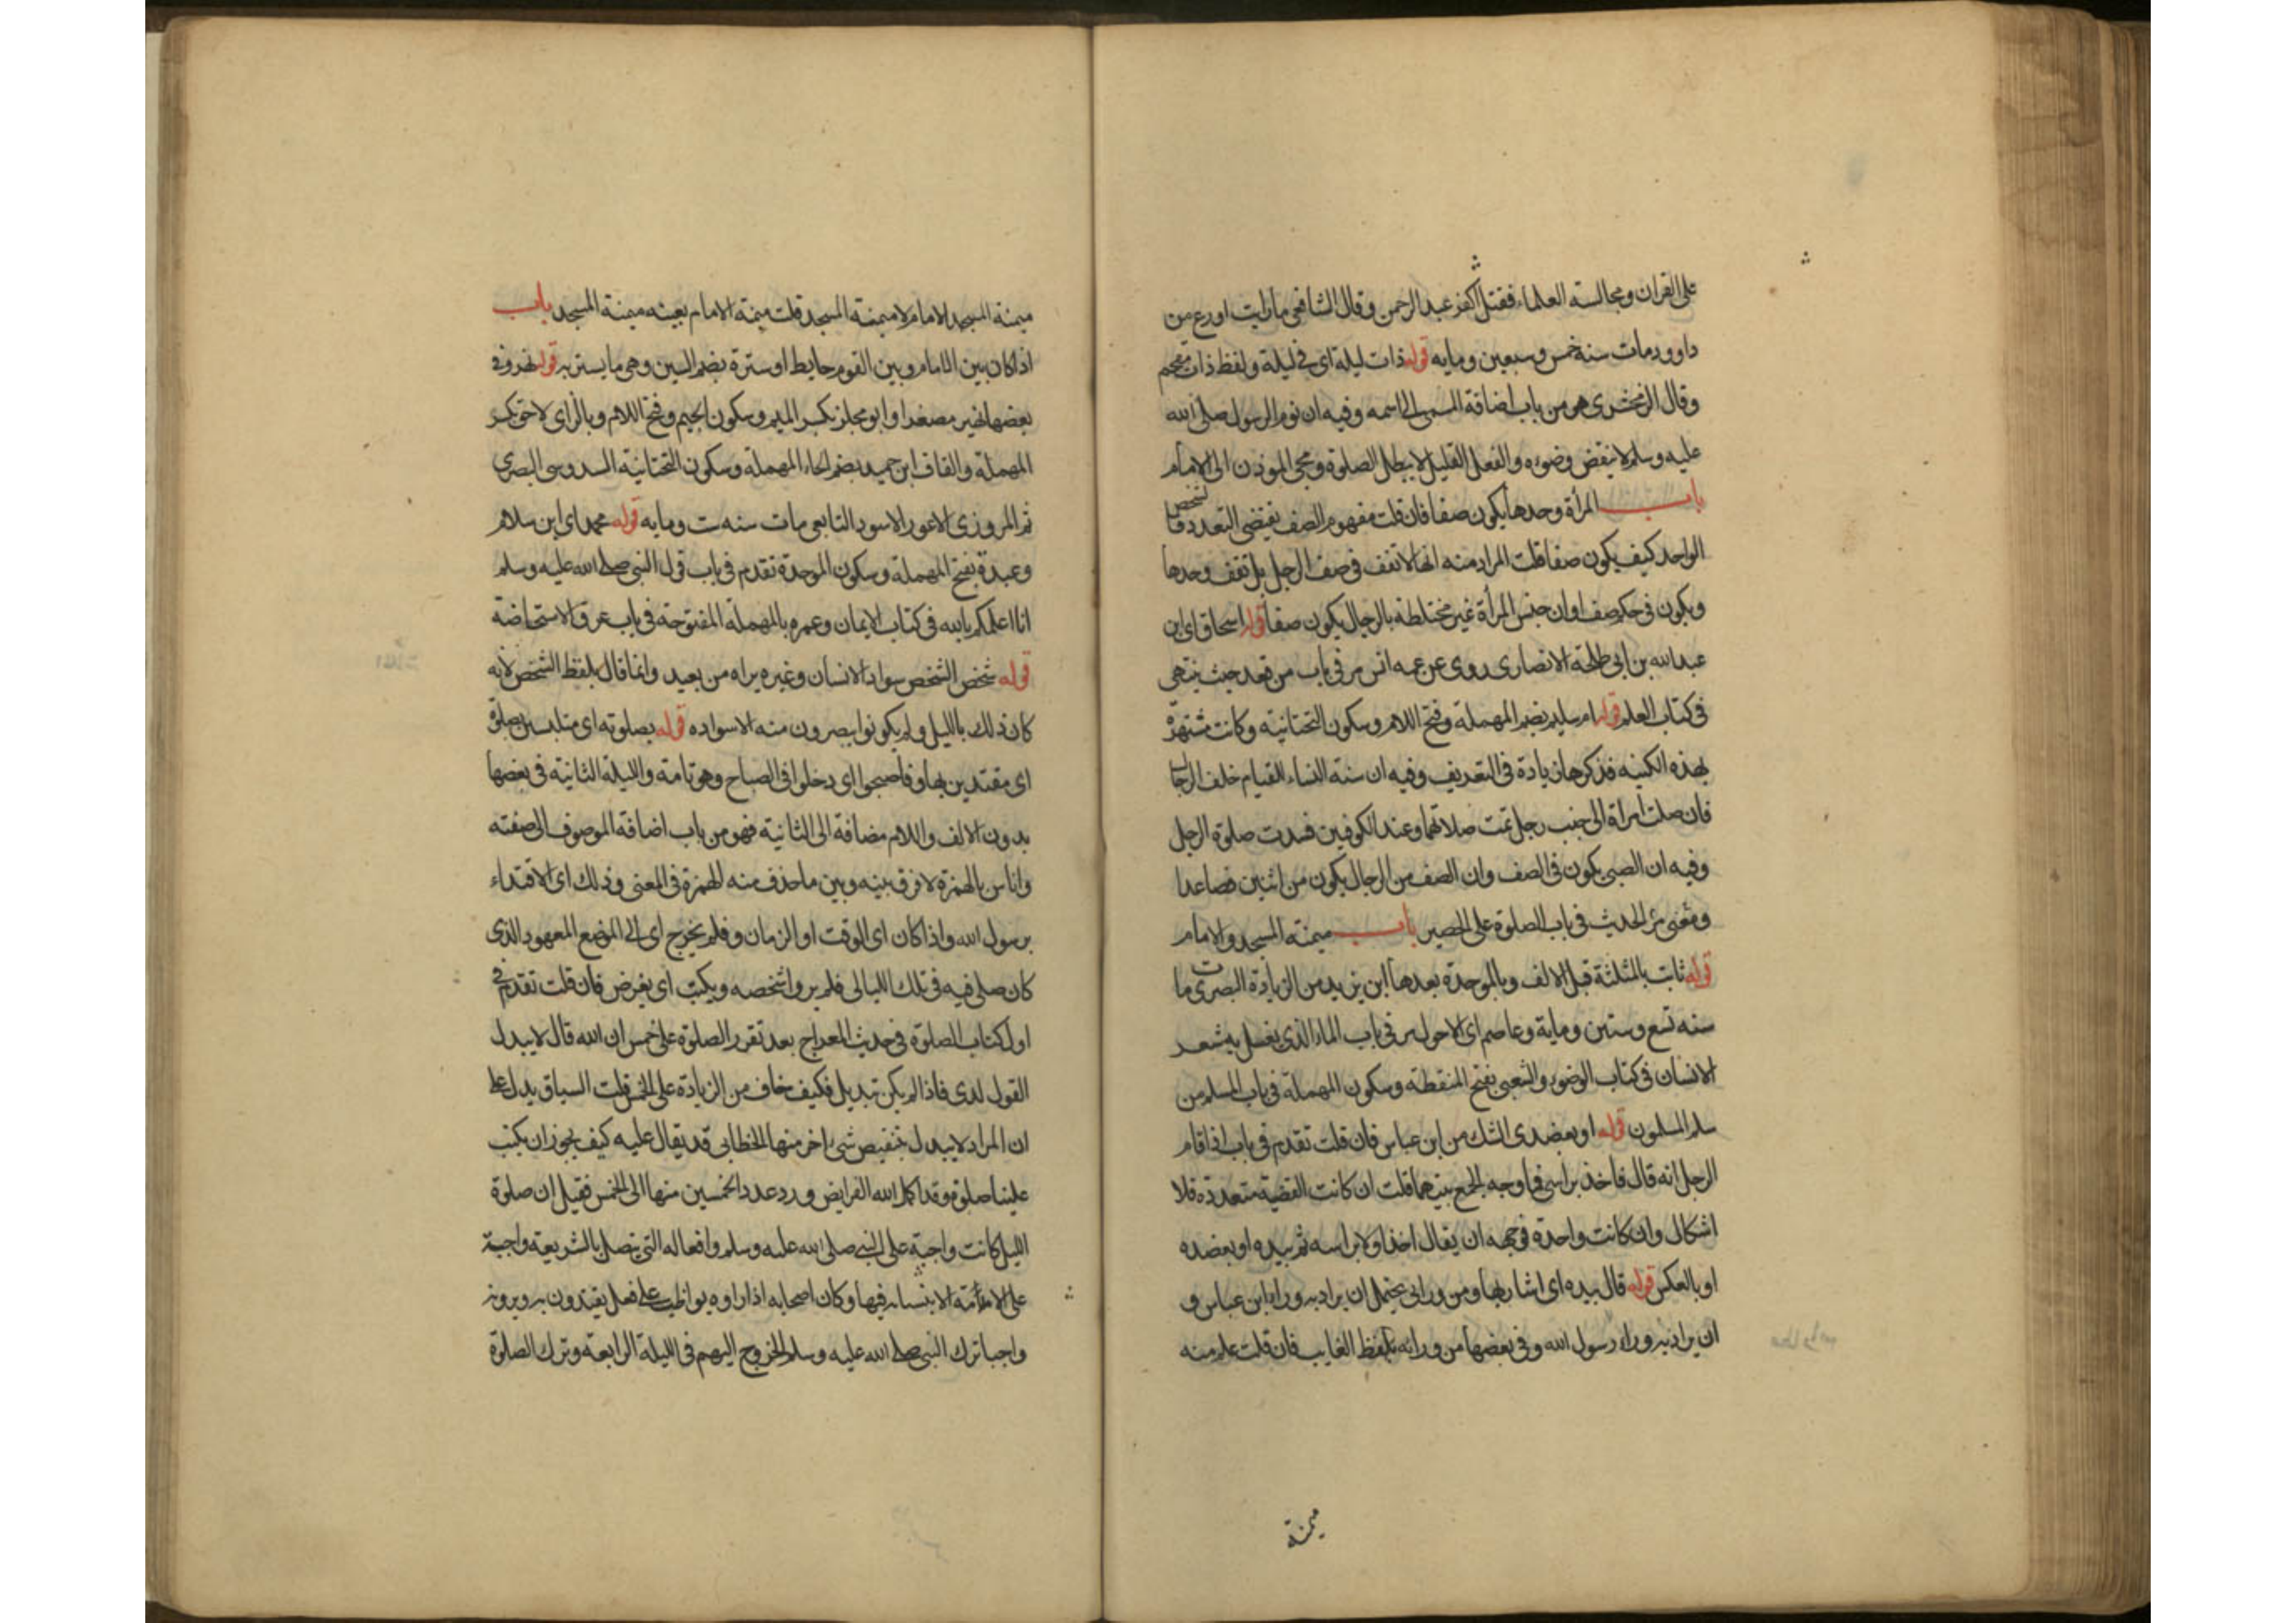 على القران ومجالسة العلماء فقتل اكفر عبد الرحمن وقال الشافعي ما رايت اورع من
داوود مات سنه خمس وسبعين ومايه قوله ذات ليلة اى في ليلة ولفظ ذات مقحم
وقال الزمخشرى هو من باب اضافة المسمى الى اسمه وفيه ان نوم الرسول صلى الله
عليه وسلم لا ينقض وضوءه والفعل القليل لا يبطل الصلوة ومجى الموذن الى الامام
باب المرأة وحدها يكون صفا فان قلت مفهوم الصف يقتضى التعدد فا لشخص
الواحد كيف يكون صفا قلت المراد منه انها لا تقف في صف الرجل بل تقف وحدها
ويكون في حكم صف او ان جنس المرأة غير مختلطة بالرجال يكون صفا قوله اسحاق اى ابن
عبد الله بن ابى طلحة الانصارى روى عن عمه انس مر في باب من قعد حيث ينتهى
في كتاب العلم قوله ام سليم بضم المهملة وفتح اللام وسكون التحتانية وكانت مشتهرة
بهذه الكنيه فذكرها زيادة في التعريف وفيه ان سنة النساء القيام خلف الرجال
فان صلت امراة الى جنب رجل تمت صلاتهما وعند الكوفيين فسدت صلوة الرجل
وفيه ان الصبى يكون في الصف وان الصف من الرجال يكون من اثنين فصاعدا
ومعنى مر الحديث في باب الصلوة على الحصير باب ميمنة المسجد والامام
قوله ثابت بالمثلثة قبل الالف وبالموحدة بعدها ابن يزيد من الزيادة البصرى مات
سنه تسع وستين وماية وعاصم اى الاحول مر في باب الماء الذى يغسل به شعر
الانسان في كتاب الوضوء والشعبى بفتح المنقطة وسكون المهملة في باب المسلم من
سلم المسلمون قوله او بعضدى الشك من ابن عباس فان قلت تقدم في باب اذا قام
الرجل انه قال فاخذ براسى فما وجه الجمع بينهما قلت ان كانت القضية متعددة فلا
اشكال وان كانت واحدة فوجهه ان يقال اخذ اولا براسه ثم بيده او بعضده
او بالعكس قوله قال بيده اى اشار بها ومن ورائى يحتمل ان يراد به وراء ابن عباس و
ان يراد به وراء رسول الله وفي بعضها من ورائه بلفظ الغايب فان قلت علم منه
ميمنة
ميمنة المسجد الامام لا ميمنة المسجد قلت ميمنة الامام بعينه ميمنة المسجد باب
اذا كان بين الامام وبين القوم حايط او سترة بضم السين وهى ما يستتر به قوله نهر وفي
بعضها نهير مصغرا وابو مجلز بكسر الميم وسكون الجيم وفتح اللام وبالزاى لاحق بكسر
المهملة والقاف ابن حميد بضم الحاء المهملة وسكون التحتانية السدوسى البصرى
ثم المروزى الاعور الاسود التابعى مات سنه ست ومايه قوله محمد اى ابن سلام
وعبدة بفتح المهملة وسكون الموحدة تقدم في باب قول النبى صلى الله عليه وسلم
انا اعلمكم بالله في كتاب الايمان وعمره بالمهملة المفتوحة في باب عرق الاستحاضة
قوله شخص الشخص سواد الانسان وغيره يراه من بعيد وانما قال بلفظ الشخص لانه
كان ذلك بالليل ولم يكونوا يبصرون منه الا سواده قوله بصلوته اى متلبسين بصلوة
اى مقتدين بها وفاصبحوا اى دخلوا في الصباح وهو تامة والليلة الثانية في بعضها
بدون الالف واللام مضافة الى الثانية فهو من باب اضافة الموصوف الى صفته
واناس بالهمزة لا فرق بينه وبين ما حذف منه الهمزة في المعنى وذلك اى الاقتداء
برسول الله واذا كان اى الوقت او الزمان وفلم يخرج اى الى الموضع المعهود الذى
كان صلى فيه في تلك الليالى فلم يروا شخصه ويكتب اى يفرض فان قلت تقدم في
اول كتاب الصلوة في حديث المعراج بعد تقرر الصلوة على خمس ان الله قال لا يبدل
القول لدى فاذا لم يكن تبديل فكيف خاف من الزيادة على الخمس قلت السياق يدل على
ان المراد لا يبدل بتنقيص شى اخر منها الخطابى قد يقال عليه كيف يجوز ان يكتب
علينا صلوة وقد اكمل الله الفرايض ورد عدد الخمسين منها الى الخمس فقيل ان صلوة
الليل كانت واجبة على النبى صلى الله عليه وسلم وافعاله التى تتصل بالشريعة واجبة
على الامة الايتساء به فيها وكان اصحابه اذا راوه يواظب على فعل يقتدون به ويرونه
واجبا ترك النبى صلى الله عليه وسلم الخروج اليهم في الليلة الرابعة وترك الصلوة